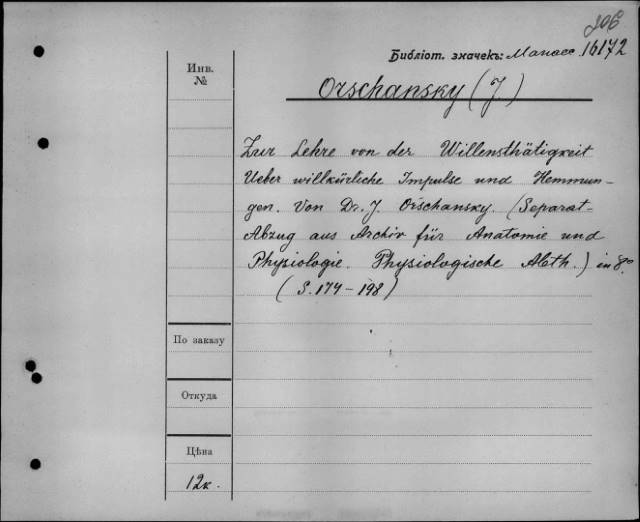 206
Библіот. значекъ: Манасс. 16172
Инв.
№
Orschansky (J.)
Zur Lehre von der Willensthätigkeit
Ueber willkürliche Impulse und Hemmun-
gen. Von Dr. J. Orschansky. (Separat-
Abzug aus Archiv für Anatomie und
Physiologie. Physiologische Abth.) in 8°
(S. 174-198)
По заказу
Откуда
Цѣна
12к.